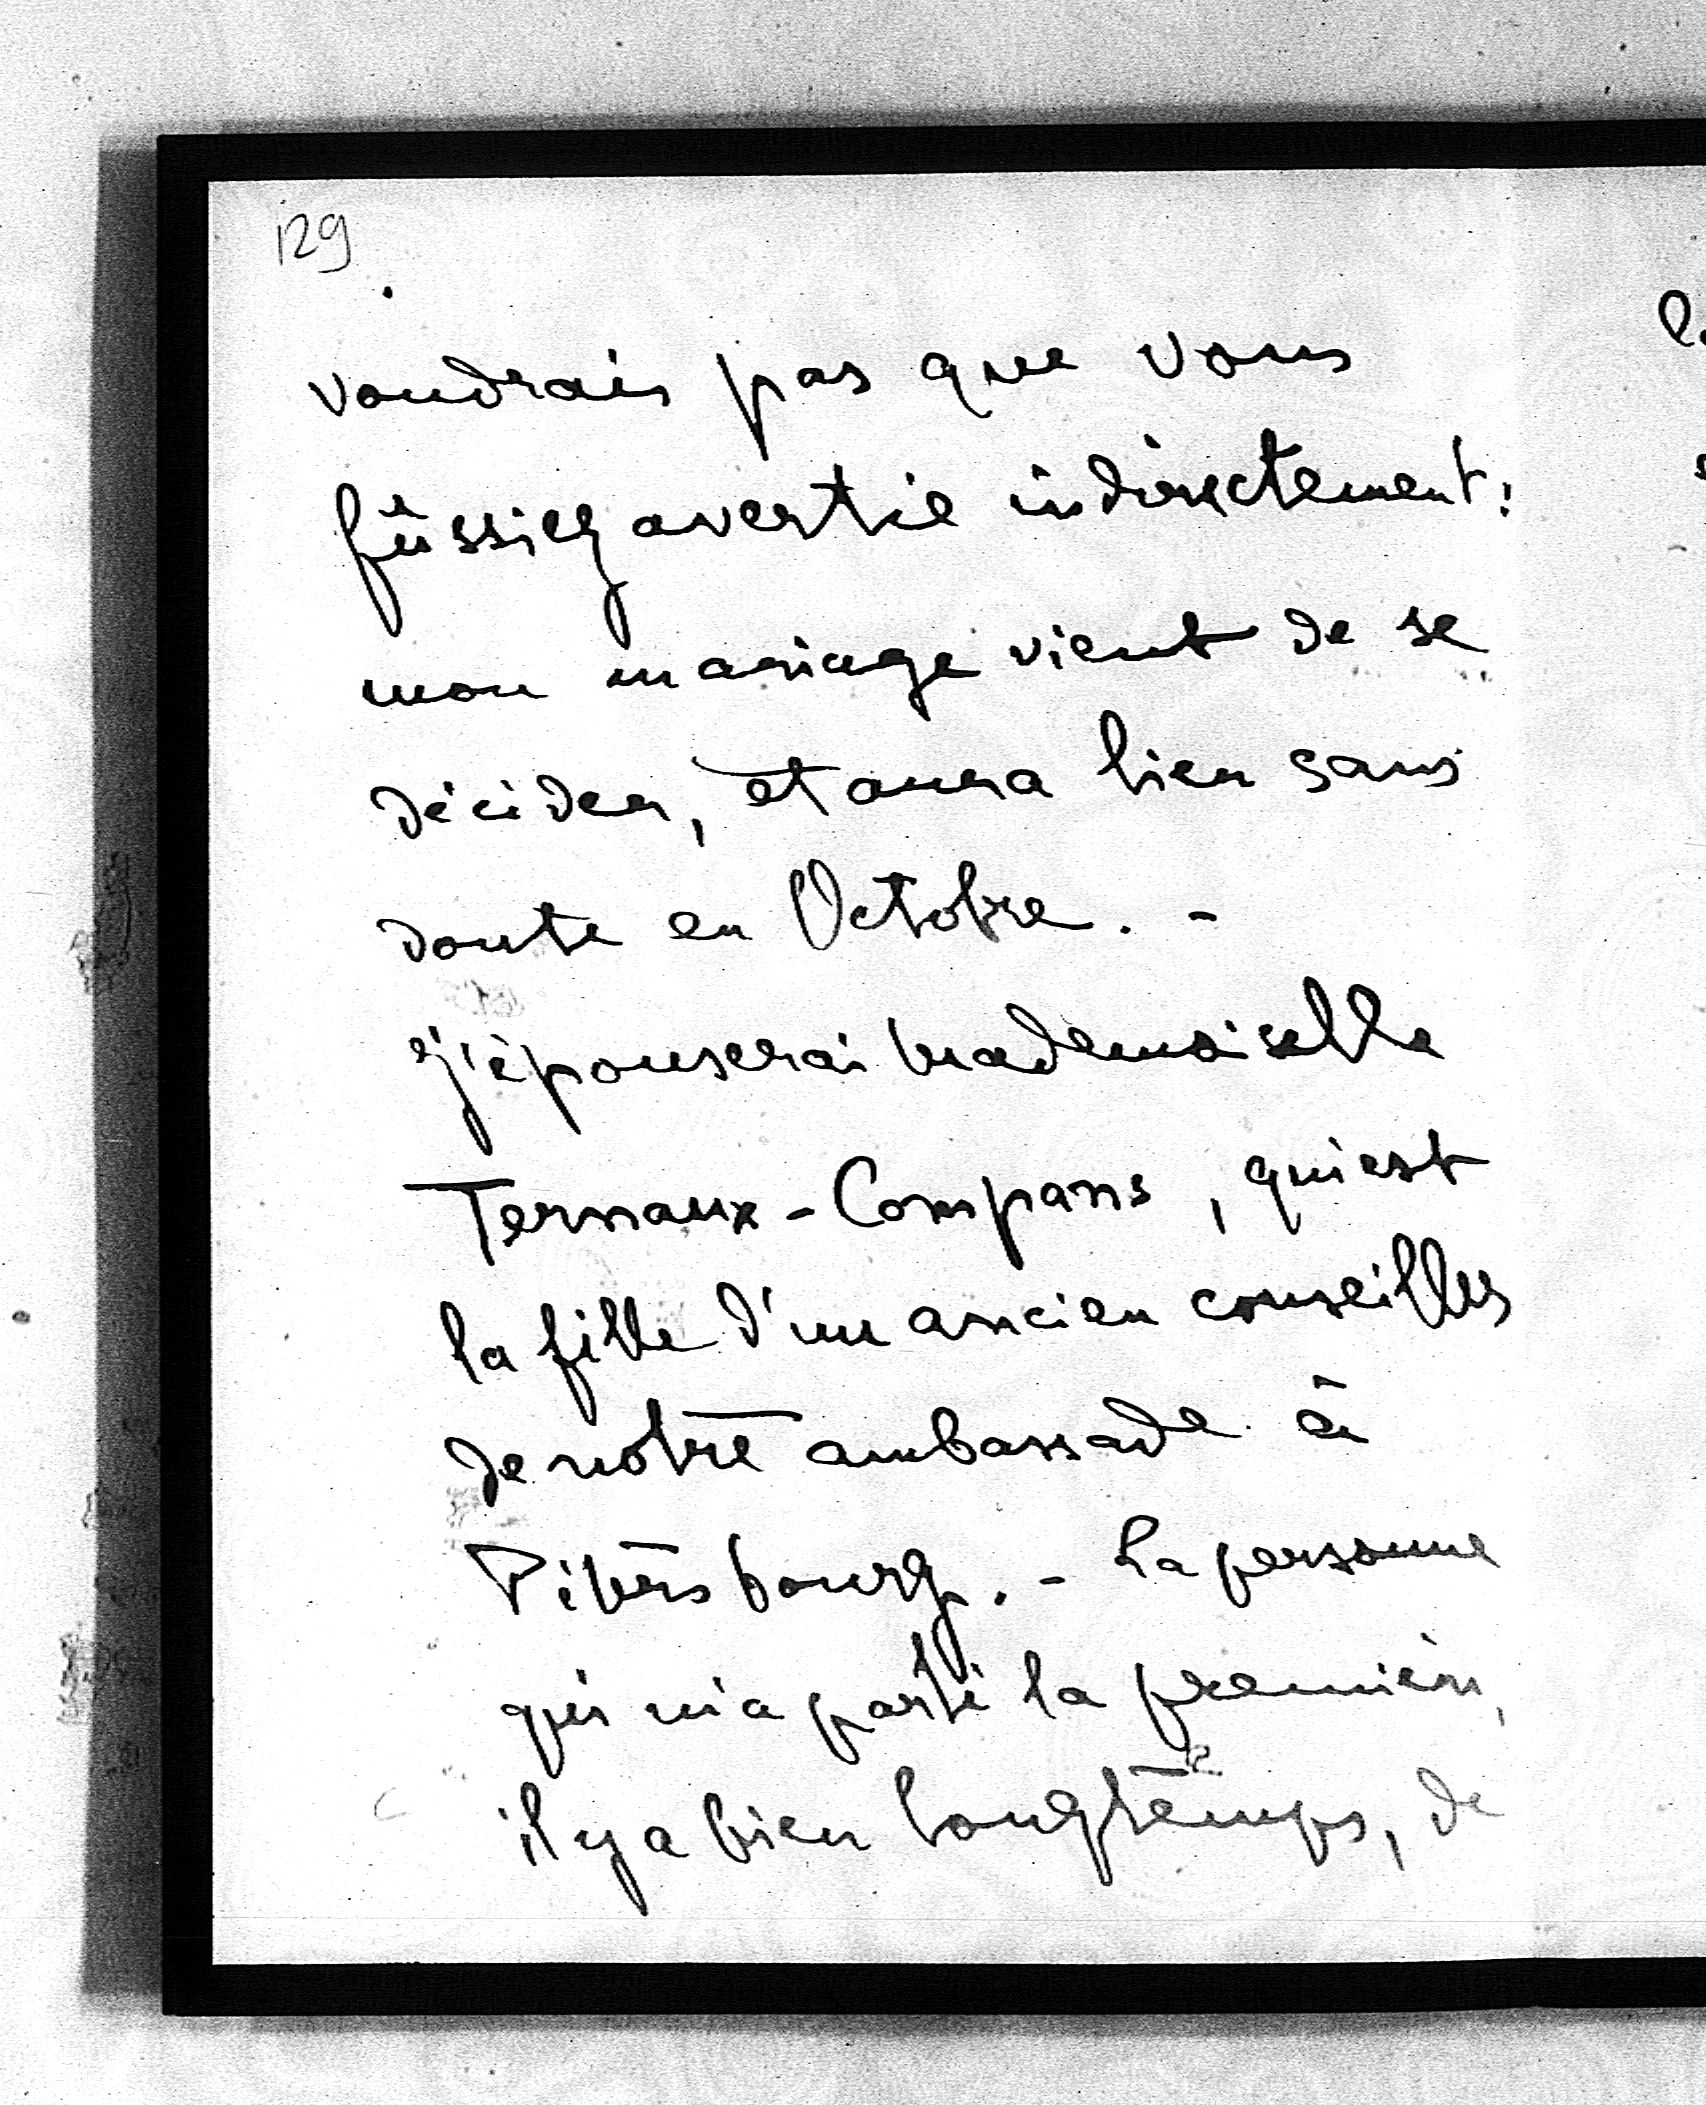 129
voudrais pas que vous
fussiez avertie indirectement :
mon mariage vient de se
décider, et aura lieu sans
doute en Octobre. -
j'épouserai Mademoiselle
Ternaux-Compans, qui est
la fille d'un ancien conseiller
de notre ambassade à
Pétersbourg. - La personne
qui m'a parlé la première,
il y a bien longtemps, de